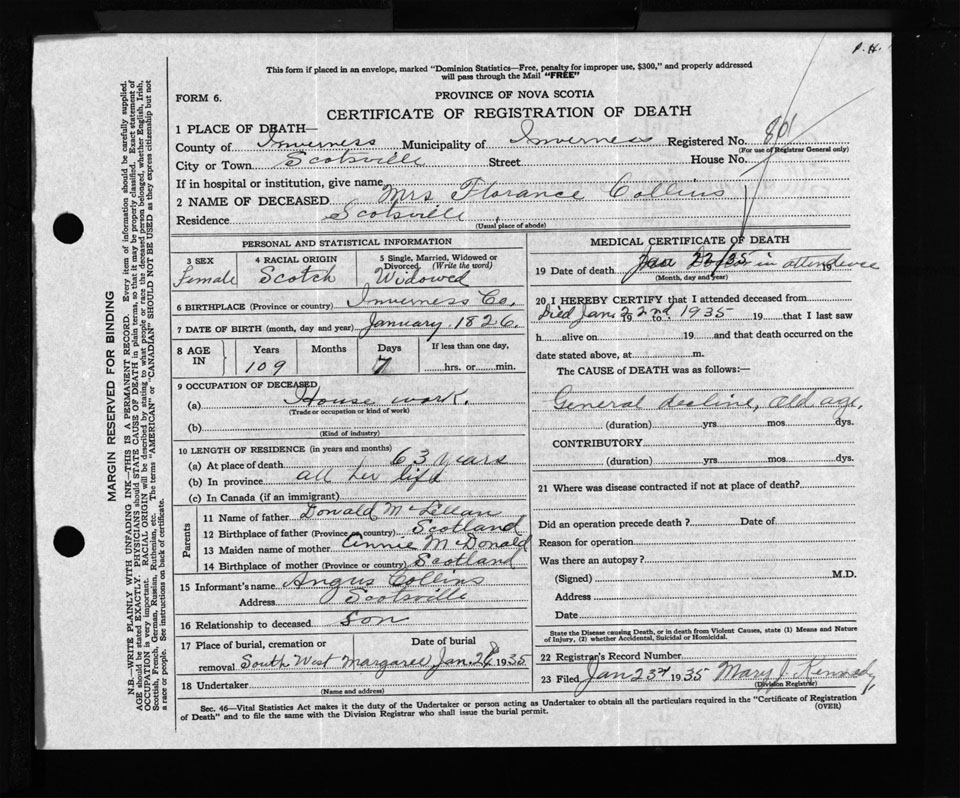 P. H.
This form if placed in an envelope, marked "Dominion Statistics—Free, penalty for improper use, $300," and properly addressed
will pass through the Mail "FREE"
FORM 6.
PROVINCE OF NOVA SCOTIA
CERTIFICATE OF REGISTRATION OF DEATH
1 PLACE OF DEATH—
County of Inverness Municipality of Inverness Registered No. 801
(For use of Registrar General only)
City or Town Scotsville Street House No.
If in hospital or institution, give name
2 NAME OF DECEASED Mrs Florance Collins
Residence Scotsville
(Usual place of abode)
PERSONAL AND STATISTICAL INFORMATION
3 SEX 4 RACIAL ORIGIN 5 Single, Married, Widowed or
Divorced. (Write the word)
Female Scotch Widowed
6 BIRTHPLACE (Province or country) Inverness Co.
7 DATE OF BIRTH (month, day and year) January. 1826.
8 AGE IN Years Months Days If less than one day,
109 7 hrs. or min.
9 OCCUPATION OF DECEASED
(a) House work.
(Trade or occupation or kind of work)
(b)
(Kind of industry)
10 LENGTH OF RESIDENCE (in years and months)
(a) At place of death 63 years
(b) In province all her life
(c) In Canada (if an immigrant)
Parents
11 Name of father Donald McLellan
12 Birthplace of father (Province or country) Scotland
13 Maiden name of mother Annie McDonald
14 Birthplace of mother (Province or country) Scotland
15 Informant's name Angus Collins
Address Scotsville
16 Relationship to deceased son
17 Place of burial, cremation or Date of burial
removal South West Margaree Jan. 1935
18 Undertaker
(Name and address)
MEDICAL CERTIFICATE OF DEATH
19 Date of death Jan 22/35 in attendence 19
(Month, day and year)
20 I HEREBY CERTIFY that I attended deceased from
Died Jan. 22nd 1935 19 to 19 that I last saw
h alive on 19 and that death occurred on the
date stated above, at m.
The CAUSE of DEATH was as follows:—
General decline, old age.
(duration) yrs. mos. dys.
CONTRIBUTORY
(duration) yrs. mos. dys.
21 Where was disease contracted if not at place of death?
Did an operation precede death ? Date of
Reason for operation
Was there an autopsy ?
(Signed) M.D.
Address
Date
State the Disease causing Death, or in death from Violent Causes, state (1) Means and Nature
of Injury, (2) whether Accidental, Suicidal or Homicidal.
22 Registrar's Record Number
23 Filed Jan 23rd 1935 Mary J. Kennedy,
(Division Registrar)
Sec. 46—Vital Statistics Act makes it the duty of the Undertaker or person acting as Undertaker to obtain all the particulars required in the "Certificate of Registration
of Death" and to file the same with the Division Registrar who shall issue the burial permit.
(OVER)
MARGIN RESERVED FOR BINDING
N.B.—WRITE PLAINLY WITH UNFADING INK—THIS IS A PERMANENT RECORD. Every item of information should be carefully supplied.
AGE should be stated EXACTLY. PHYSICIANS should STATE CAUSE OF DEATH in plain terms, so that it may be properly classified. Exact statement of
OCCUPATION is very important. RACIAL ORIGIN will be described by stating to what people or race the deceased person belonged, whether English, Irish,
Scottish, French, German, Russian, Ruthenian, etc. The terms "AMERICAN" or "CANADIAN" SHOULD NOT BE USED as they express citizenship but not
a race or people. See instructions on back of certificate.